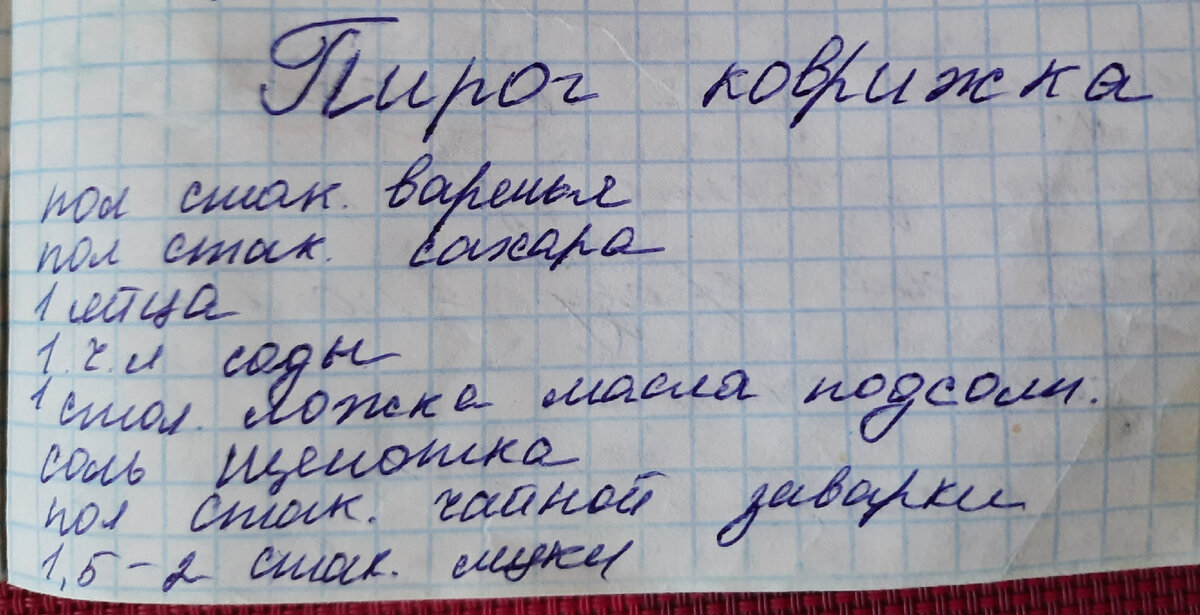 Пирог коврижка
пол стак. варенья
пол стак. сахара
1 яйца
1.ч.л соды
1 стол. ложка масла подсолн.
соль щепотка
пол стак. чайной заварки
1,5-2 стак. муки